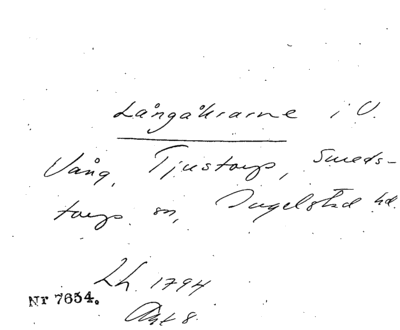 Långåkrarne i V.
Vång, Tjustorp, Smeds-
torps sn, Ingelstad hd.
Lh. 1794
Nr 7654.
Akt 8.